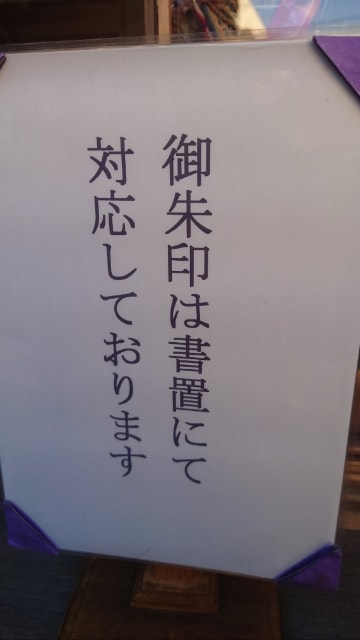 御朱印は書置にて
対応しております